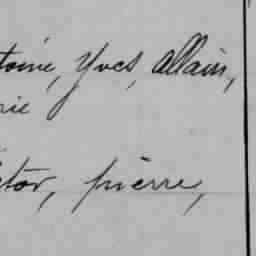 toine, Yves, Allain,
rie
ctor, pierre,